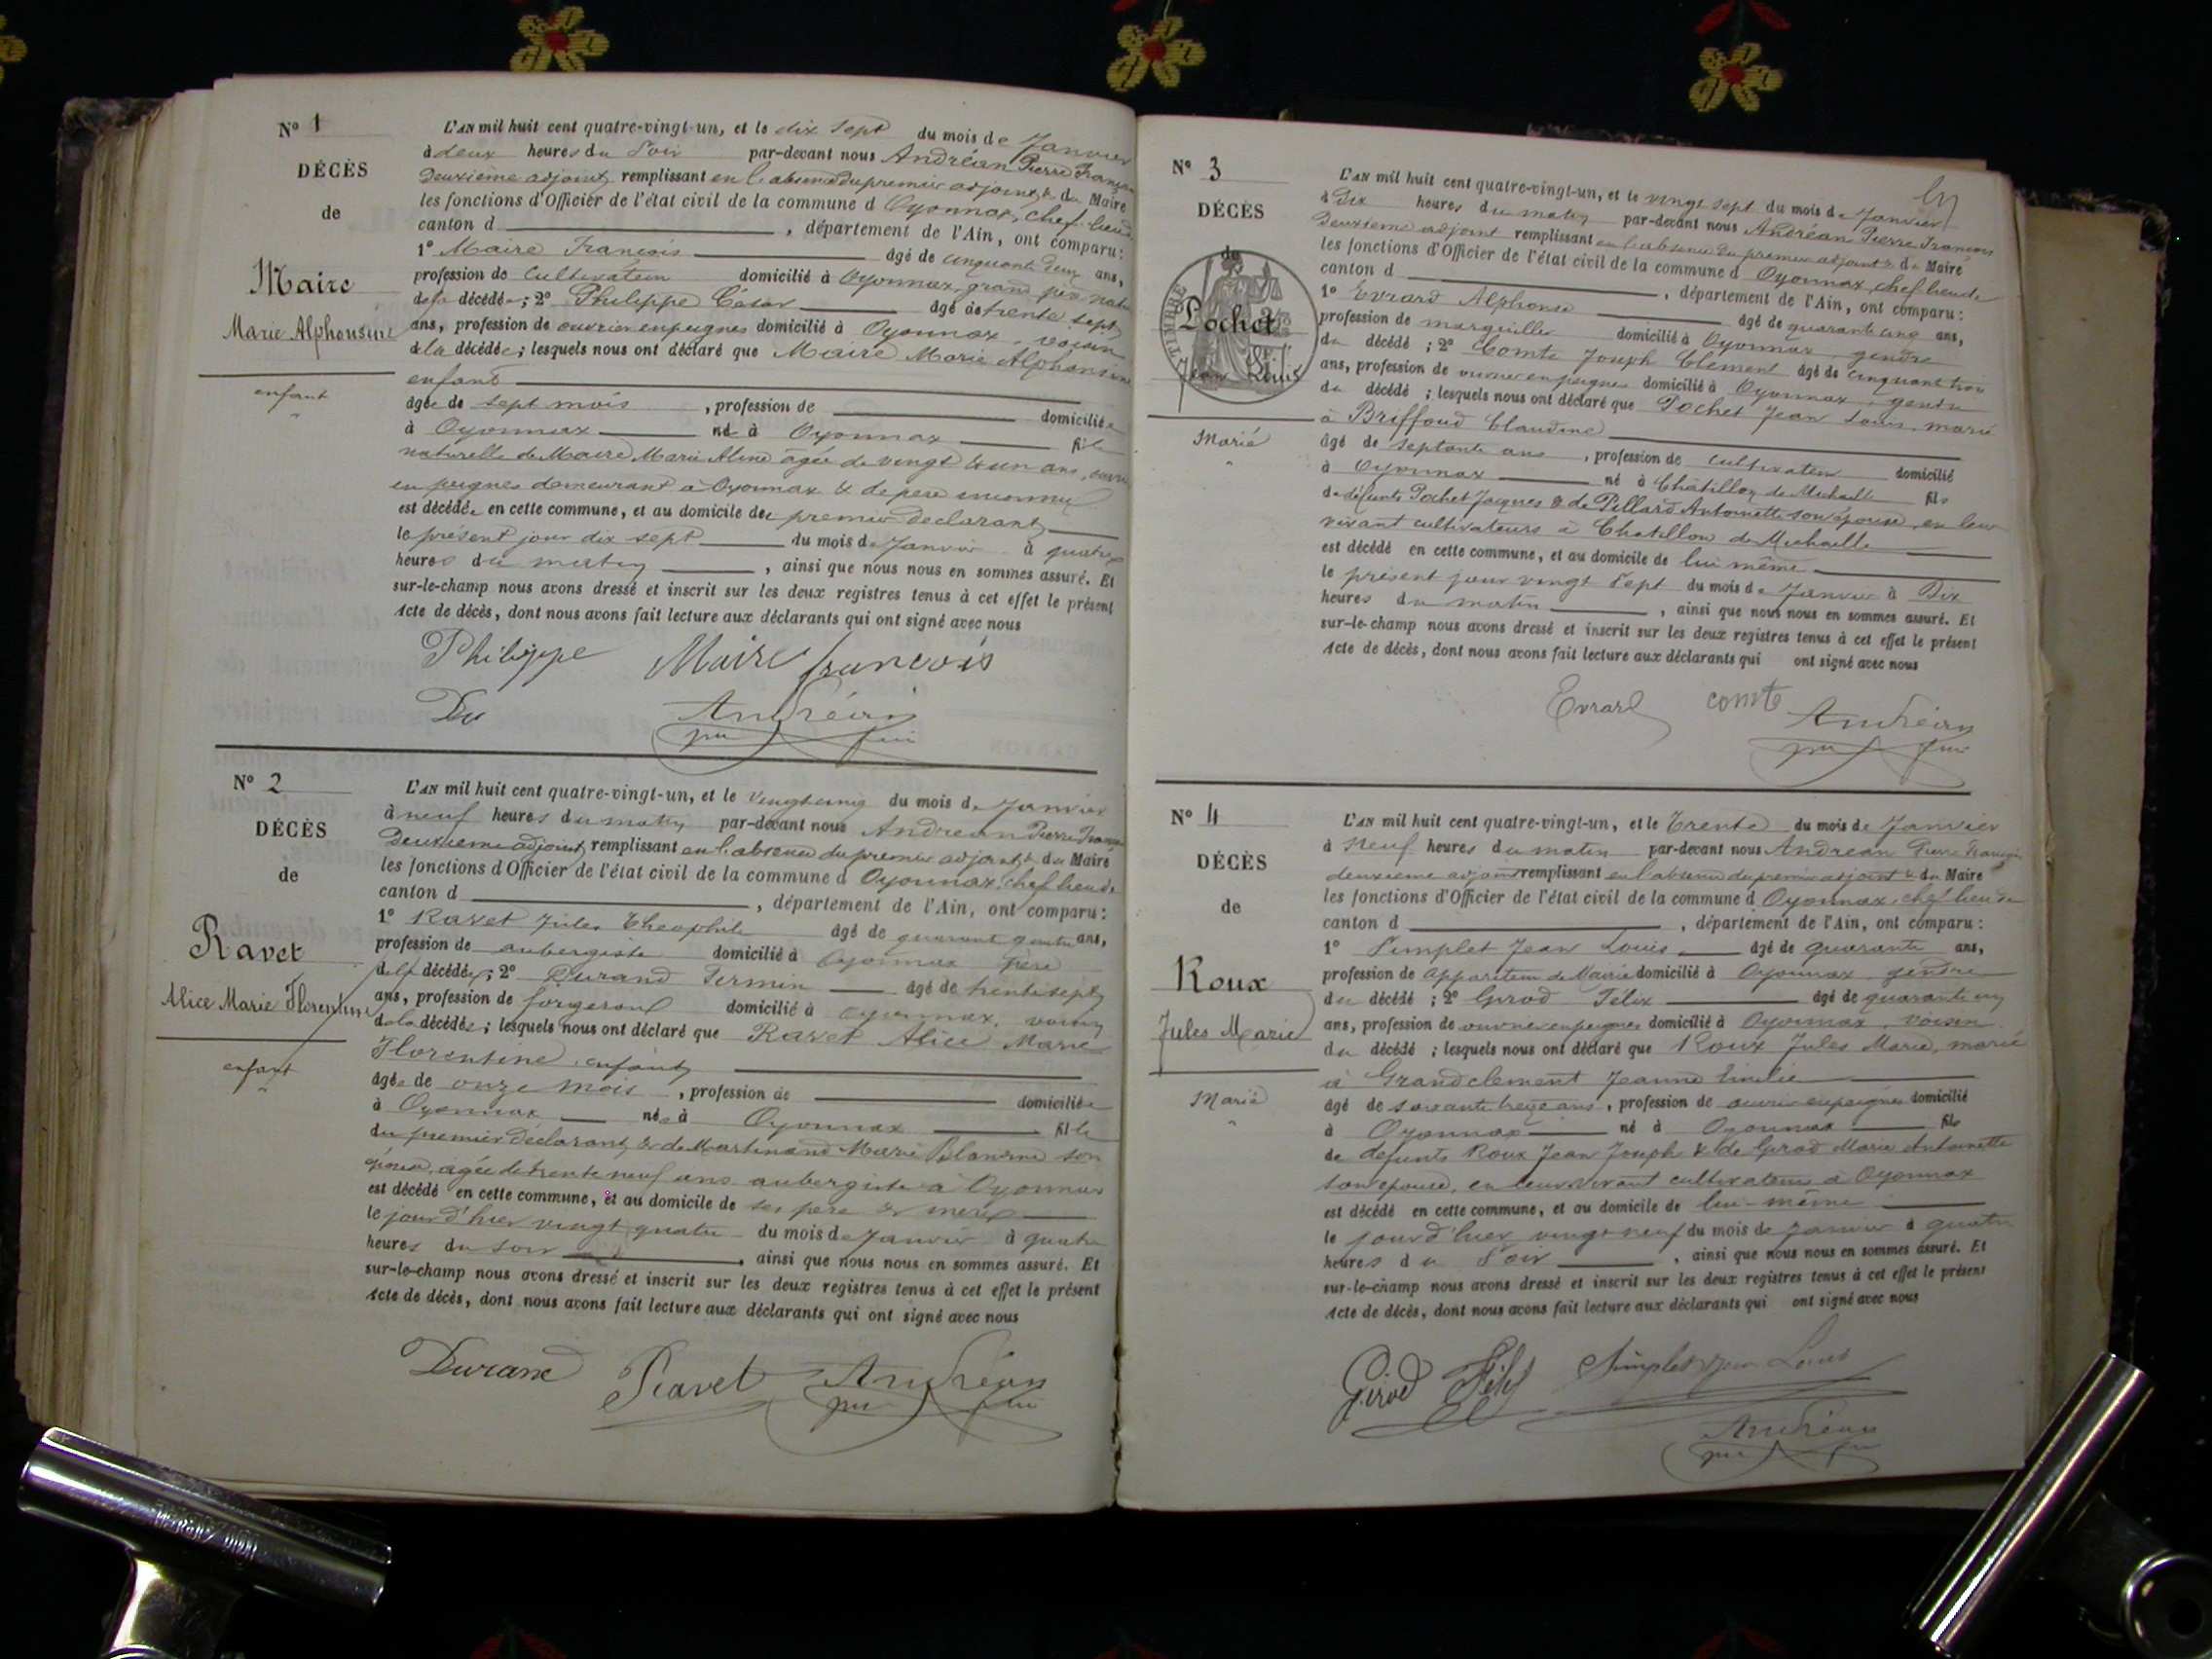 N° 1
DÉCÈS
de
Maire
Marie Alphonsine
enfant
L'AN mil huit cent quatre-vingt-un, et le dix sept du mois de Janvier
à deux heures du Soir par-devant nous Andréan Pierre François
Deuxième adjoint remplissant en l'absence du premier adjoint & du Maire
les fonctions d'Officier de l'état civil de la commune d Oyonnax, chef-lieu de
canton d , département de l'Ain, ont comparu:
1° Maire François âgé de cinquante deux ans,
profession de Cultivateur domicilié à Oyonnax, grand père
de la décédée; 2° Philippe César âgé de trente sept
ans, profession de ouvrier en peignes domicilié à Oyonnax, voisin
de la décédée; lesquels nous ont déclaré que Maire Marie Alphonsine
enfant
âgée de sept mois , profession de domiciliée
à Oyonnax née à Oyonnax fille
naturelle de Maire Marie Aline âgée de vingt & un ans,
en peignes demeurant à Oyonnax & de père inconnu
est décédée en cette commune, et au domicile du premier déclarant
le présent jour dix sept du mois de Janvier à quatre
heures du matin , ainsi que nous nous en sommes assuré. Et
sur-le-champ nous avons dressé et inscrit sur les deux registres tenus à cet effet le présent
Acte de décès, dont nous avons fait lecture aux déclarants qui ont signé avec nous
Philippe Maire francois
Andréan
N° 2
DÉCÈS
de
Ravet
Alice Marie Florentine
enfant
L'AN mil huit cent quatre-vingt-un, et le vingt cinq du mois de Janvier
à neuf heures du matin par-devant nous Andréan Pierre François
Deuxieme adjoint remplissant en l'absence du premier adjoint & du Maire
les fonctions d'Officier de l'état civil de la commune d Oyonnax, chef lieu de
canton d , département de l'Ain, ont comparu:
1° Ravet Jules Theophile âgé de quarante quatre ans,
profession de aubergiste domicilié à Oyonnax Père
de la décédée; 2° Durand Firmin âgé de trente sept
ans, profession de forgeron domicilié à Oyonnax, voisin
de la décédée; lesquels nous ont déclaré que Ravet Alice Marie
Florentine, enfant
âgée de onze mois , profession de domiciliée
à Oyonnax née à Oyonnax fille
du premier déclarant & de Martinand Marie son
épouse, agée de trente neuf ans aubergiste à Oyonnax
est décédé en cette commune, et au domicile de ses père & mère
le jour d'hier vingt quatre du mois de Janvier à quatre
heures du soir , ainsi que nous nous en sommes assuré. Et
sur-le-champ nous avons dressé et inscrit sur les deux registres tenus à cet effet le présent
Acte de décès, dont nous avons fait lecture aux déclarants qui ont signé avec nous
Durand Ravet Andréan
N° 3
DÉCÈS
de
TIMBRE
Pochet
Jean Louis
Marié
L'AN mil huit cent quatre-vingt-un, et le vingt sept du mois de Janvier
à Dix heures du matin par-devant nous Andréan Pierre François
Deuxieme adjoint remplissant en l'absence du premier adjoint & du Maire
les fonctions d'Officier de l'état civil de la commune d Oyonnax, chef lieu de
canton d , département de l'Ain, ont comparu:
1° Evrard Alphonse âgé de quarante cinq ans,
profession de marguiller domicilié à Oyonnax gendre
du décédé ; 2° Comte Joseph Clément âgé de cinquante trois
ans, profession de ouvrier en peignes domicilié à Oyonnax, gendre
du décédé ; lesquels nous ont déclaré que Pochet Jean Louis, marié
à Briffoud Claudine
âgé de septante ans , profession de cultivateur domicilié
à Oyonnax né à Châtillon de Michaille fils
de défunts Pochet Jacques & de Pillard Antoinette son épouse, en leur
vivant cultivateurs à Chatillon de Michaille
est décédé en cette commune, et au domicile de lui même
le présent jour vingt sept du mois de Janvier à Dix
heures du matin , ainsi que nous nous en sommes assuré. Et
sur-le-champ nous avons dressé et inscrit sur les deux registres tenus à cet effet le présent
Acte de décès, dont nous avons fait lecture aux déclarants qui ont signé avec nous
Evrard comte Andréan
N° 4
DÉCÈS
de
Roux
Jules Marie
Marié
L'AN mil huit cent quatre-vingt-un, et le Trente du mois de Janvier
à Neuf heures du matin par-devant nous Andréan Pierre François
deuxieme adjoint remplissant en l'absence du premier adjoint & du Maire
les fonctions d'Officier de l'état civil de la commune d Oyonnax, chef lieu de
canton d , département de l'Ain, ont comparu:
1° Simplet Jean Louis âgé de quarante ans,
profession de appariteur de Mairie domicilié à Oyonnax gendre
du décédé ; 2° Girod Félix âgé de quarante cinq
ans, profession de ouvrier en peignes domicilié à Oyonnax, voisin
du décédé ; lesquels nous ont déclaré que Roux Jules Marie, marié
à Grandclement Jeanne Emilie
âgé de soixante treize ans , profession de ouvrier en peignes domicilié
à Oyonnax né à Oyonnax fils
de défunts Roux Jean Joseph & de Girod Marie Antoinette
son épouse, en leur vivant cultivateurs à Oyonnax
est décédé en cette commune, et au domicile de lui-même
le jour d'hier vingt neuf du mois de Janvier à quatre
heures du Soir , ainsi que nous nous en sommes assuré. Et
sur-le-champ nous avons dressé et inscrit sur les deux registres tenus à cet effet le présent
Acte de décès, dont nous avons fait lecture aux déclarants qui ont signé avec nous
Girod Félix Simplet Jean Louis
Andréan